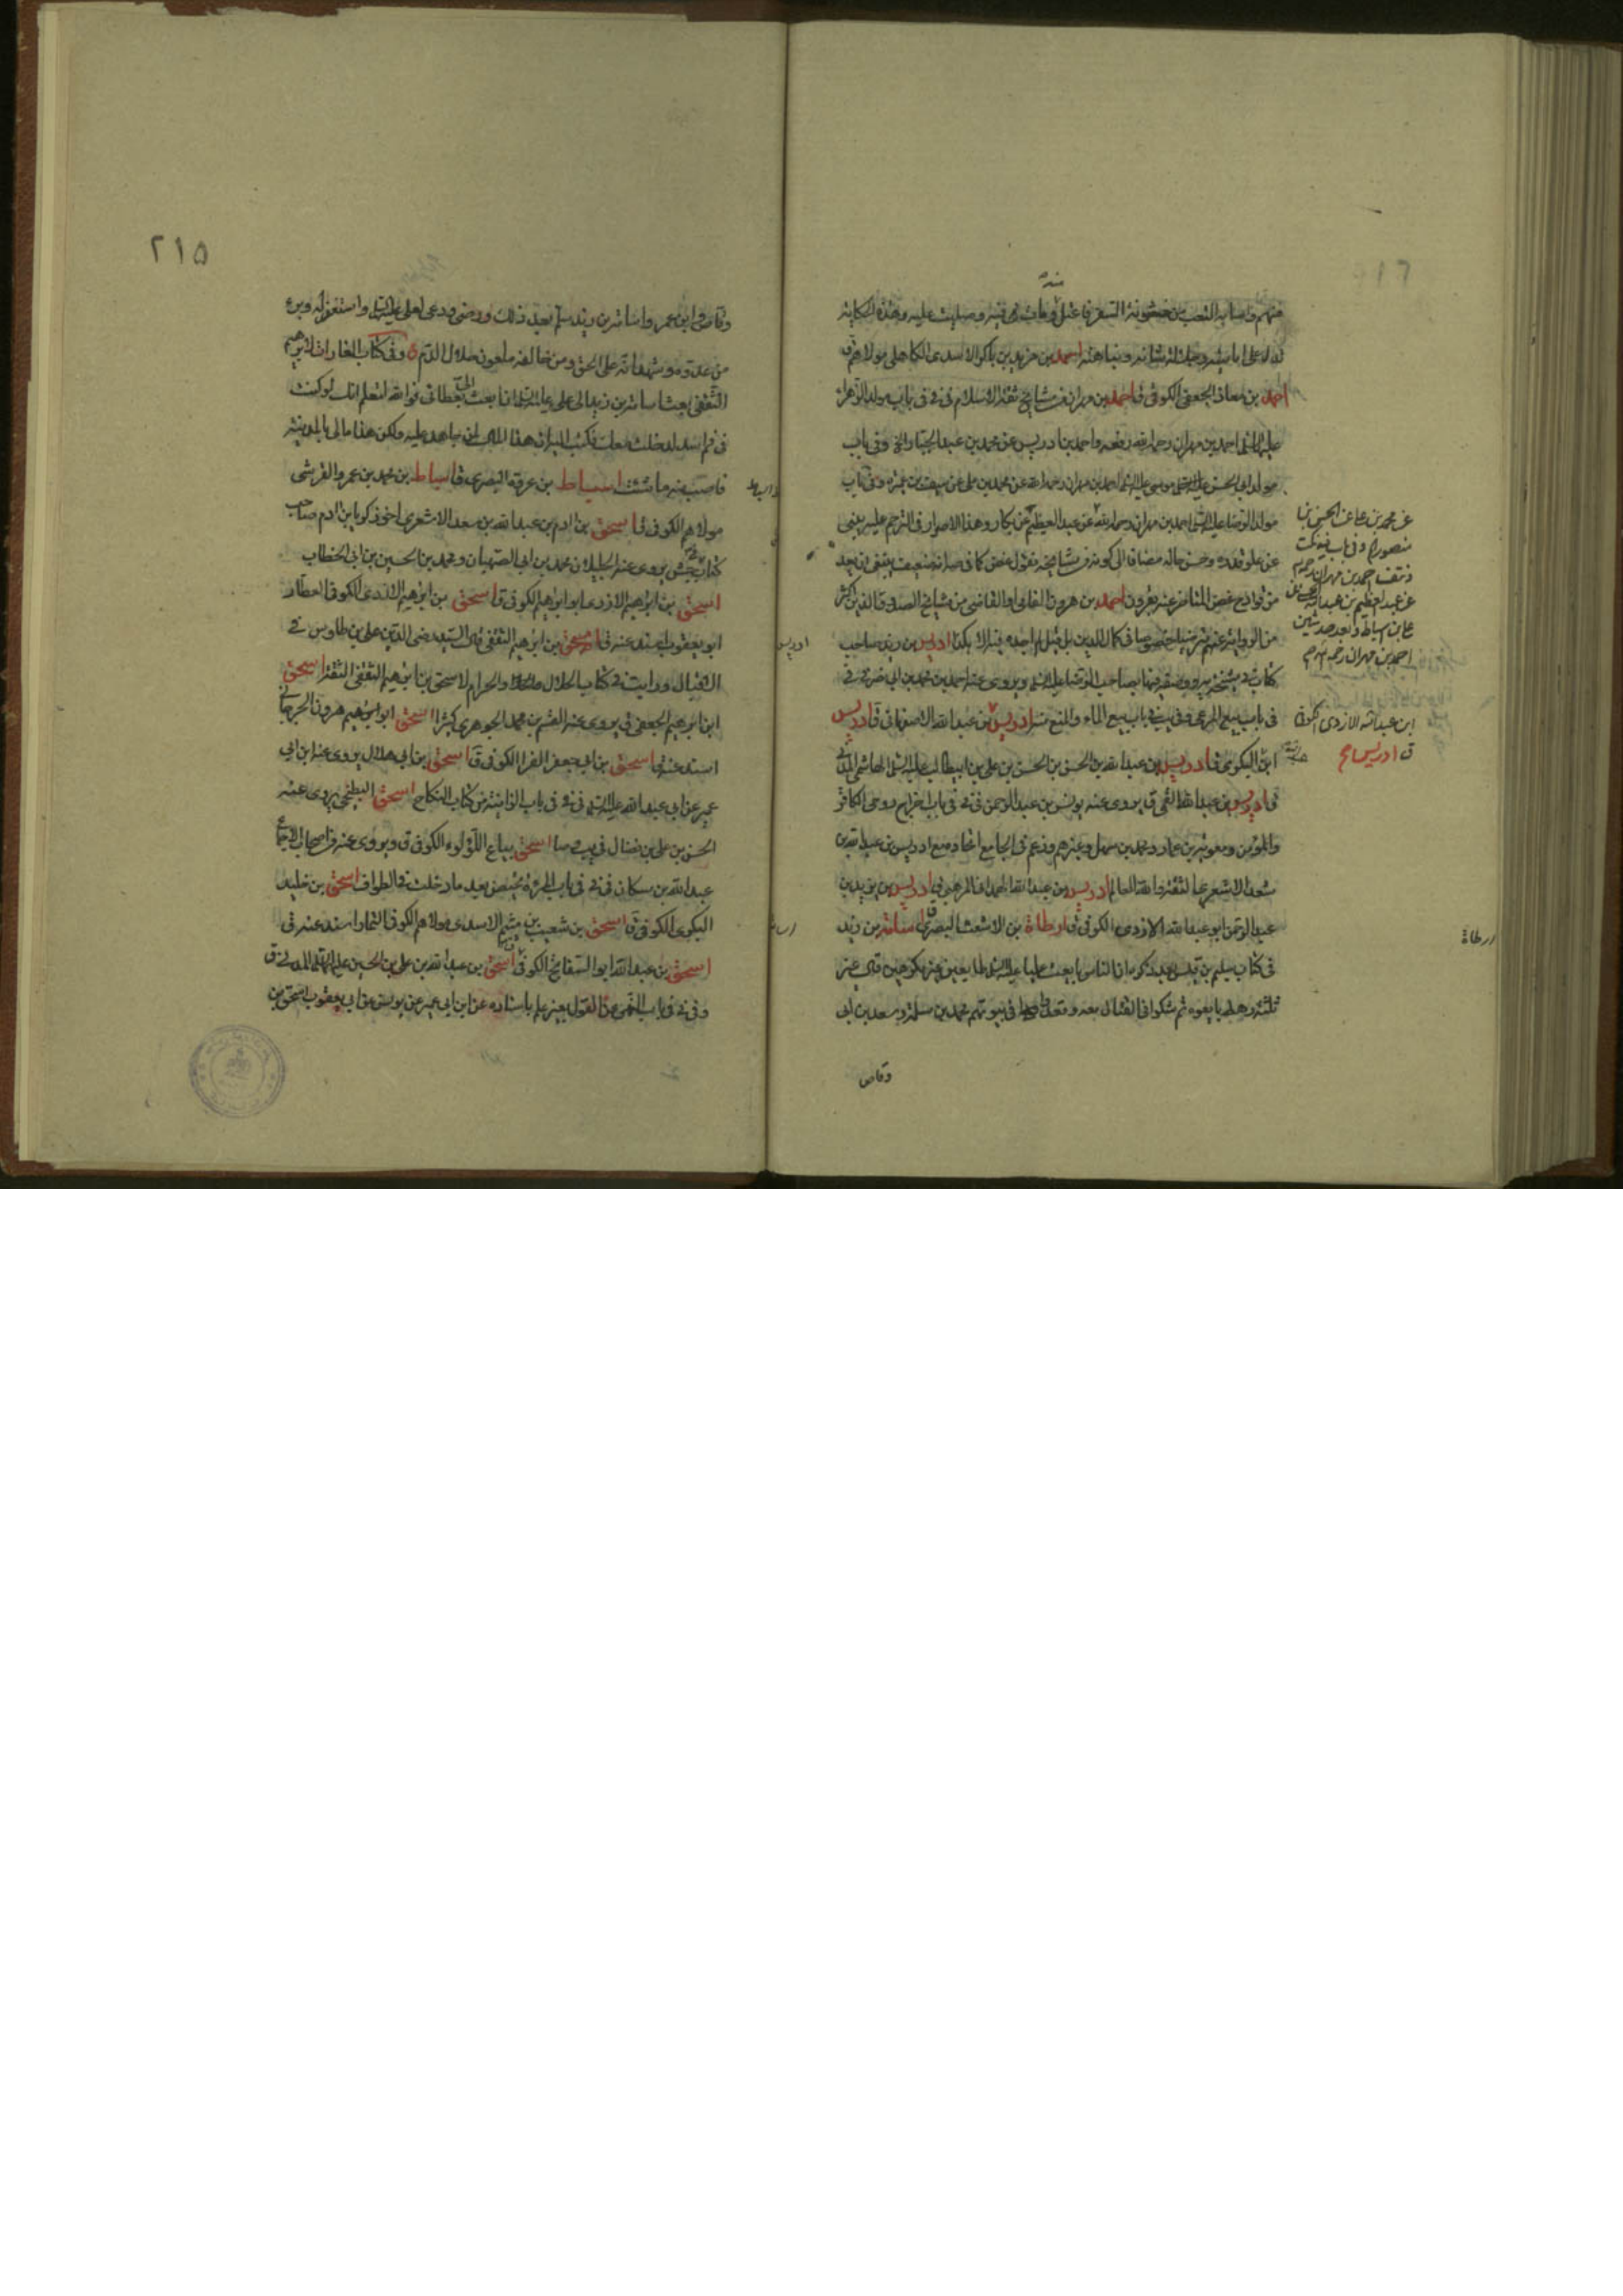 منه
منهم واصابه التعب من خشونة السفر فاعتل ومات في قم وصليت عليه وهذه الحكاية
تدل على امانته وجلالة شانه ونباهته احمد بن مزيد بن باكر الاسدي الكاهلي مولاهم ق
احمد بن معاذ الجعفي الكوفي ق احمد بن مهران من مشايخ ثقة الاسلام في في باب مولد الزهراء
عليها السلام احمد بن مهران رحمه الله رفعه واحمد بن ادريس عن محمد بن عبد الجبار الخ وفي باب
مولد ابي الحسن موسى عليه السلام احمد بن مهران رحمه الله عن محمد بن علي عن سيف بن عميرة وفي باب
مولد الرضا عليه السلام احمد بن مهران رحمه الله عن عبد العظيم عن بكار وهذا الاصرار في الترحم عليه ينبئ
عن علو قدره وحسن حاله مضافا الى كونه من مشايخه فقول غض كما في صه انه ضعيف ينبغي ان يعد
احمد بن هرون الفامي او القاضي من مشايخ الصدوق الذين اكثر
من الرواية عنهم مترضيا خصوصا في كمال الدين ادريس بن زيد صاحب
كتاب في مشيخة يه ووصفه فيها بصاحب الرضا عليه السلام ويروي عنه احمد بن محمد بن ابي نصر في في
في باب بيع المرعى وفي يب في باب بيع الماء والمنع منه ادريس بن عبد الله الاصفهاني ق ادريس
البكري ق ادريس بن عبد الله بن الحسن بن الحسن بن علي بن ابيطالب عليه السلام الهاشمي المدني
ق ادريس بن عبد الله القمي ق يروي عنه يونس بن عبد الرحمن في في في باب اخراج روح الكافر
والمؤمن ومعوية بن عمار ومحمد بن سهل وغيرهم وزعم في الجامع اتحاده مع ادريس بن عبد الله بن
سعد الاشعري الثقة والله العالم ادريس بن عبد الله الهمداني المرهبي ق ادريس بن يزيد بن
عبد الرحمن ابو عبد الله الازدي الكوفي ق ارطاة بن الاشعث البصري ق اسامة بن زيد
في كتاب سليم بن قيس بعد ذكره ان الناس بايعت عليا عليه السلام طايعين غير مكرهين قال غير
ثلثة رهط بايعوه ثم شكوا في القتال معه وقعدوا في بيوتهم محمد بن مسلمة وسعد بن ابي
وقاص
عن محمد بن علي عن الحسين بن
منصور
احمد بن مهران رحمه
عن عبد العظيم بن عبد الله
علي بن اسباط وبعد حديثين
احمد بن مهران رحمه
ابن عبد الله الازدي الكوفي
ق ادريس
ارطاة
٢١٥
وقاص وابن عمر واسامة بن زيد سلم بعد ذلك ورضي ودعى لعلي عليه السلام واستغفر له وبرء
من عدوه وشهد انه على الحق ومن خالفه ملعون حلال الدم وفي كتاب الغارات لابرهيم
الثقفي بعث اسامة بن زيد الى علي عليه السلام ان ابعث الي بعطائي فوالله لتعلم انك لو كنت
في فم اسد لدخلت معك فكتب اليه ان هذا المال لمن جاهد عليه ولكن هذا مالي بالمدينة
فاصب منه ما شئت اسباط بن عروة البصري ق اسباط بن محمد بن عمرو القرشي
مولاهم الكوفي ق اسحق بن ادم بن عبد الله بن سعد الاشعري اخو زكريا بن ادم صاحب
كتاب في جش يروي عنه الجليلان محمد بن ابي الصهبان ومحمد بن الحسين بن ابي الخطاب
اسحق بن ابرهيم الازدي ابو ابرهيم الكوفي ق اسحق بن ابرهيم الازدي الكوفي العطار
ابو يعقوب اسند عنه ق اسحق بن ابرهيم الثقفي قال السيد رضي الدين علي بن طاوس في
الاقبال ورايت في كتاب الحلال والحرام لاسحق بن ابرهيم الثقفي الثقة اسحق
ابن ابرهيم الجعفي ق يروي عنه القسم بن محمد الجوهري كثيرا اسحق ابو ابرهيم هرون الجرجاني
اسند عنه ق اسحق بن ابي جعفر الفرا الكوفي ق اسحق بن ابي هلال يروي عنه ابن ابي
عمير عن ابي عبد الله عليه السلام في في في باب الزانية من كتاب النكاح اسحق البطيخي يروي عنه
الحسن بن علي بن فضال في يب اسحق بياع اللؤلوء الكوفي ق ويروي عنه من اصحاب الاجماع
عبد الله بن مسكان في في في باب المرءة تحيض بعد ما دخلت في الطواف اسحق بن خليد
البكري الكوفي ق اسحق بن شعيب بن ميثم الاسدي مولاهم الكوفي التمار اسند عنه ق
اسحق بن عبد الله ابو السفاتج الكوفي ق اسحق بن عبد الله بن علي بن الحسين عليهم السلام المدني ق
وفي في في باب النهي عن القول بغير علم باسناده عن ابن ابي عمير عن يونس عن ابي يعقوب اسحق بن
اسباط
ادريس